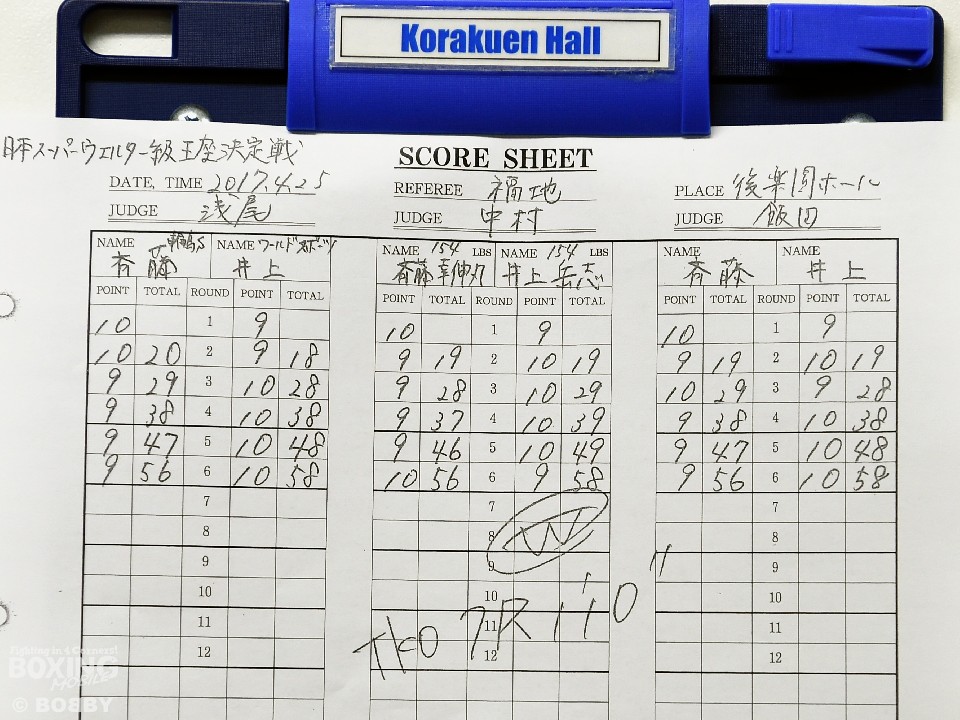 Korakuen Hall
日本スーパーウェルター級王座決定戦
SCORE SHEET
DATE, TIME 2017.4.25 REFEREE 福地 PLACE 後楽園ホール
JUDGE 浅尾 JUDGE 中村 JUDGE 飯田
NAME 斉藤 NAME ワールドスポーツ 井上 NAME 154 LBS 斉藤幸伸丸 NAME 154 LBS 井上岳志 NAME 斉藤 NAME 井上
POINT TOTAL ROUND POINT TOTAL POINT TOTAL ROUND POINT TOTAL POINT TOTAL ROUND POINT TOTAL
10 1 9 10 1 9 10 1 9
10 20 2 9 18 9 19 2 10 19 9 19 2 10 19
9 29 3 10 28 9 28 3 10 29 10 29 3 9 28
9 38 4 10 38 9 37 4 10 39 9 38 4 10 38
9 47 5 10 48 9 46 5 10 49 9 47 5 10 48
9 56 6 10 58 10 56 6 9 58 9 56 6 10 58
7 7 7
8 8 W 8
9 9 9
10 10 10
11 11 11
TKO 7R 1'10"
12 12 12
Fighting in 4 Corners!
BOXING
MOBILE
© BOBBY